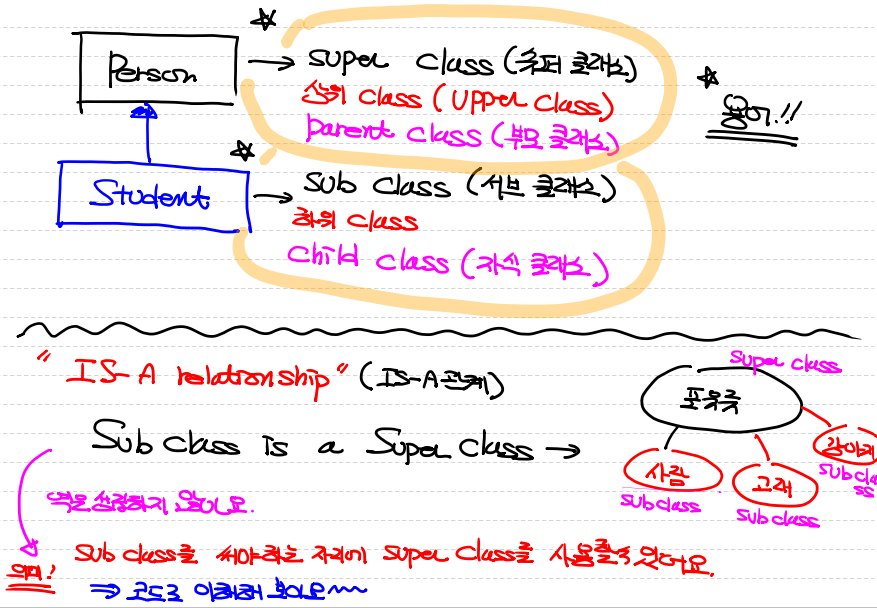 Person → super class (슈퍼 클래스)
상위 class (Upper class)
parent class (부모 클래스)
용어!!
Student → sub class (서브 클래스)
하위 class
child class (자식 클래스)
"IS-A relationship" (IS-A 관계)
super class
포유류
Sub class is a Super class →
사람
고래
강아지
subclass
sub class
subclass
역은 성립하지 않아요.
의미! Sub class를 써야하는 자리에 super class를 사용할수 있어요.
⇒ 코드로 이해해 보아요~~